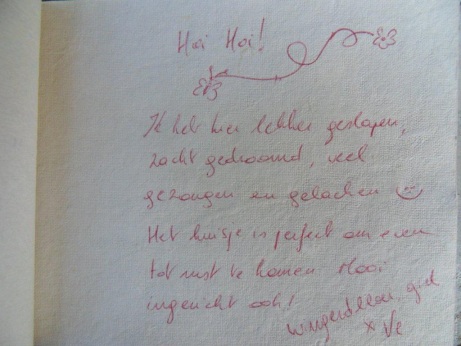 Hoi Hoi!
Ik heb hier lekker geslapen,
zacht gedroomd, veel
gezongen en gelachen
Het huisje is perfect om even
tot rust te komen Mooi
ingericht ook!
x